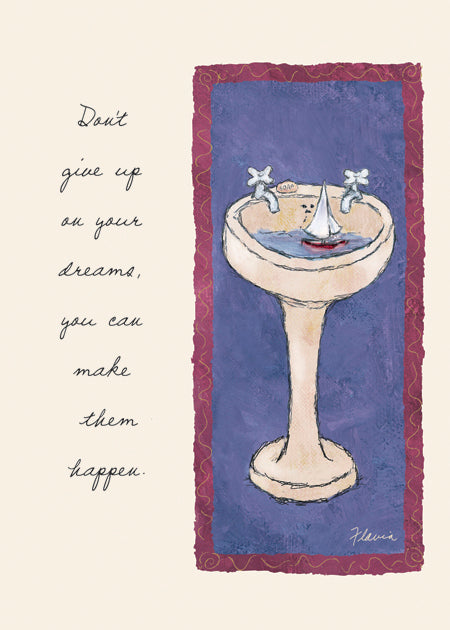 Don't
give up
on your
dreams,
you can
make
them
happen.
SOAP
Flavia